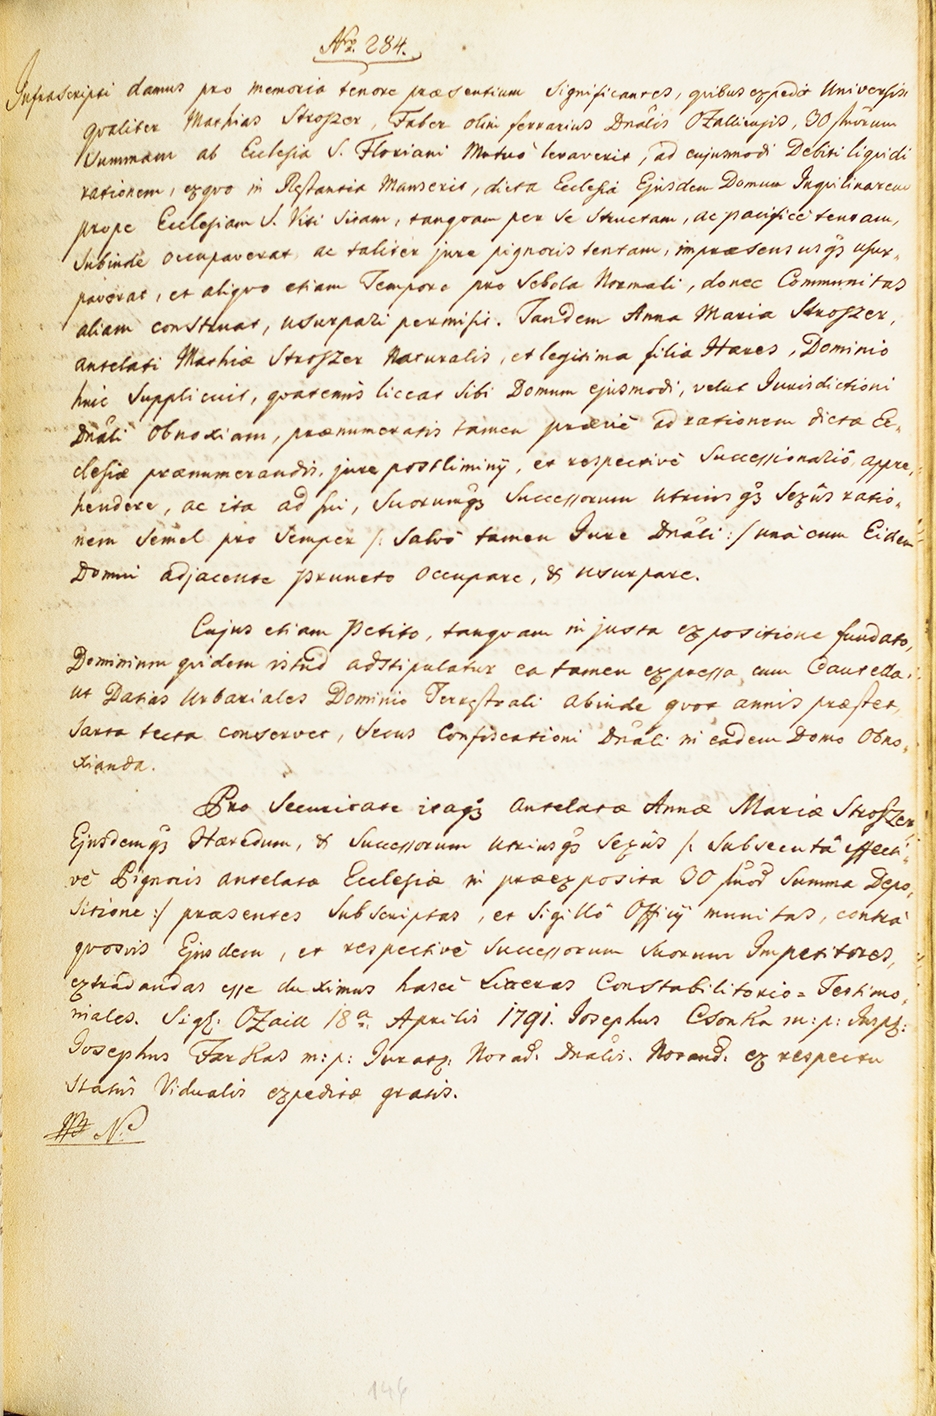 Nr̃o. 284.
Infrascripti damus pro memoria tenore praesentium significantes, quibus expedit Universis
qualiter Mathias Stroszer, Faber olim ferrarius Dnãlis Ozalliensis, 30 flnõrum
Summam ab Ecclesia S. Floriani Mutuo levaverit, ad cujusmodi Debiti liquidi
rationem, exquo in Restantia Manserit, dicta Ecclesia Ejusdem Domum Inquilinarem
prope Ecclesiam S. Viti Sitam, tanquam per se structam, ac pacificè tentam,
subinde occupaverat, ac taliter jure pignoris tentam, impraesens usq3 usur-
paverat, et aliquo etiam Tempore pro Schola Normali, donec Communitas
aliam construat, usurpari permisit. Tandem Anna Maria Stroszer,
antelati Mathiae Stroszer Naturalis, et legitima filia Haeres, Dominio
huic Supplicuit, quatenus liceat sibi Domum ejusmodi, velut Jurisdictioni
Dnãli obnoxiam, praenumeratis tamen praeviè ad rationem dictae Ec-
clesiae praenumerandis, jure postliminij, et respectivè Successionariô appre-
hendere, ac ita ad sui, Suorumq3 Successorum utriusq3 Sexûs ratio-
nem Semel pro Semper /: Salvô tamen Jure Dnãli :/ unà cum Eidem
Domui adjacente pruneto occupare, & usurpare.
Cujus etiam Petito, tanquam in justa expositione fundato,
Dominium quidem istud adstipulatur ea tamen expressa cum Cautella:
ut Datias Urbariales Dominio Terrestrali abinde quot annis praestet,
Sarta tecta conservet, secus Confiscationi Dnãli in eadem Domo Obno-
xianda.
Pro Securitate itaq3 antelatae Annae Mariae Stroszer
Ejusdemq3 Haeredum, & Successorum utriusq3 Sexûs /: Subsecutâ effecti-
vè Pignoris antelatae Ecclesiae in praeexposita 30 flnõr Summa Depo-
sitione :/ praesentes Subscriptas, et Sigillô Officij munitas, contrà
quosvis Ejusdem, et respectivè Successorum Suorum Impetitores,
extradandas esse duximus hasce Litteras Constabilitorio = Testimo-
niales. Sigl: Ozail 18ᵃ Aprilis 1791. Josephus Csonka m: p: Insp:
Josephus Farkas m: p: Jurat: Notad: Dnãlis. Notand: ex respectu
Statûs Vidualis expeditae gratis.
N.º
146